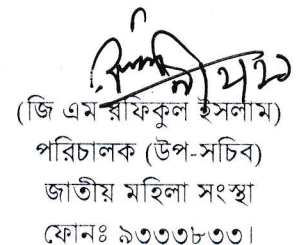 (জি এম রফিকুল ইসলাম)
পরিচালক (উপ-সচিব)
জাতীয় মহিলা সংস্থা
ফোনঃ ৯৩৩৩৮৩৩।